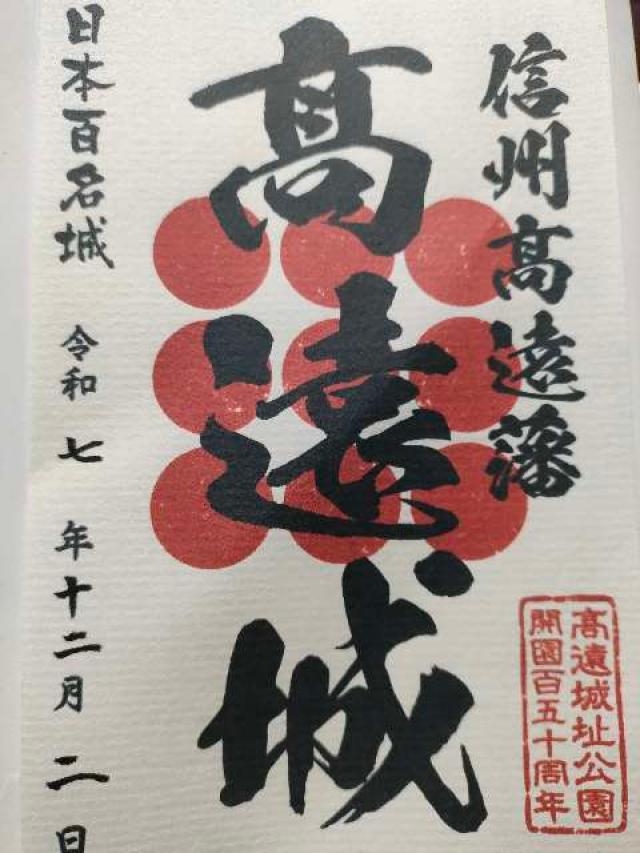 信州髙遠藩
髙遠城
日本百名城
令和七年十二月二日
髙遠城址公園
開園百五十周年